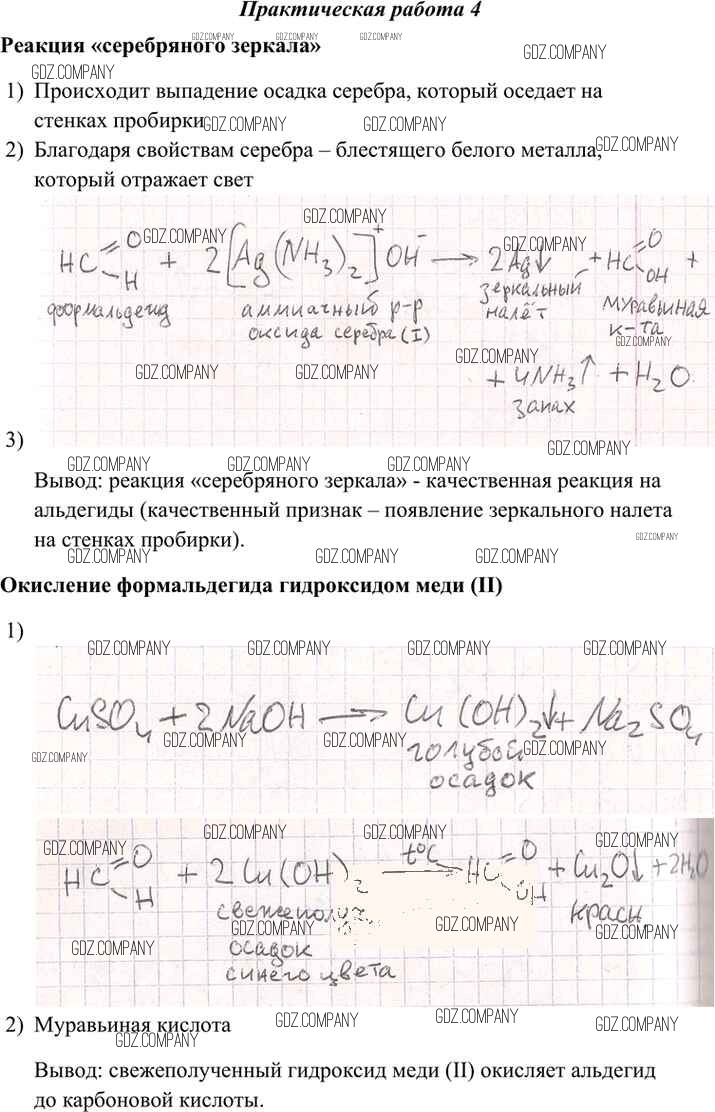 Практическая работа 4
Реакция «серебряного зеркала»
1) Происходит выпадение осадка серебра, который оседает на
стенках пробирки
2) Благодаря свойствам серебра – блестящего белого металла,
который отражает свет
HC=O–H + 2[Ag(NH₃)₂]⁺OH⁻ → 2Ag↓ + HC=O–OH +
формальдегид аммиачный р-р зеркальный муравьиная
оксида серебра (I) налёт к-та
+ 4NH₃↑ + H₂O
запах
3)
Вывод: реакция «серебряного зеркала» - качественная реакция на
альдегиды (качественный признак – появление зеркального налета
на стенках пробирки).
Окисление формальдегида гидроксидом меди (II)
1)
CuSO₄ + 2NaOH → Cu(OH)₂↓ + Na₂SO₄
голубой
осадок
HC=O–H + 2Cu(OH)₂ t°C → HC=O–OH + Cu₂O↓ + 2H₂O
свежеполуч красн
осадок
синего цвета
2) Муравьиная кислота
Вывод: свежеполученный гидроксид меди (II) окисляет альдегид
до карбоновой кислоты.
GDZ.COMPANY